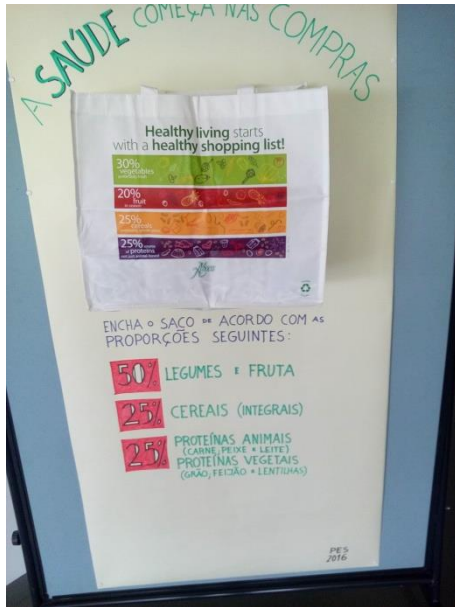 A SAÚDE COMEÇA NAS COMPRAS
Healthy living starts
with a healthy shopping list!
30%
vegetables
20%
fruit
25%
cereals
25%
of proteins
ENCHA O SACO DE ACORDO COM AS
PROPORÇÕES SEGUINTES:
50% LEGUMES E FRUTA
25% CEREAIS (INTEGRAIS)
25% PROTEÍNAS ANIMAIS
(CARNE, PEIXE E LEITE)
PROTEÍNAS VEGETAIS
(GRÃO, FEIJÃO E LENTILHAS)
PES
2016